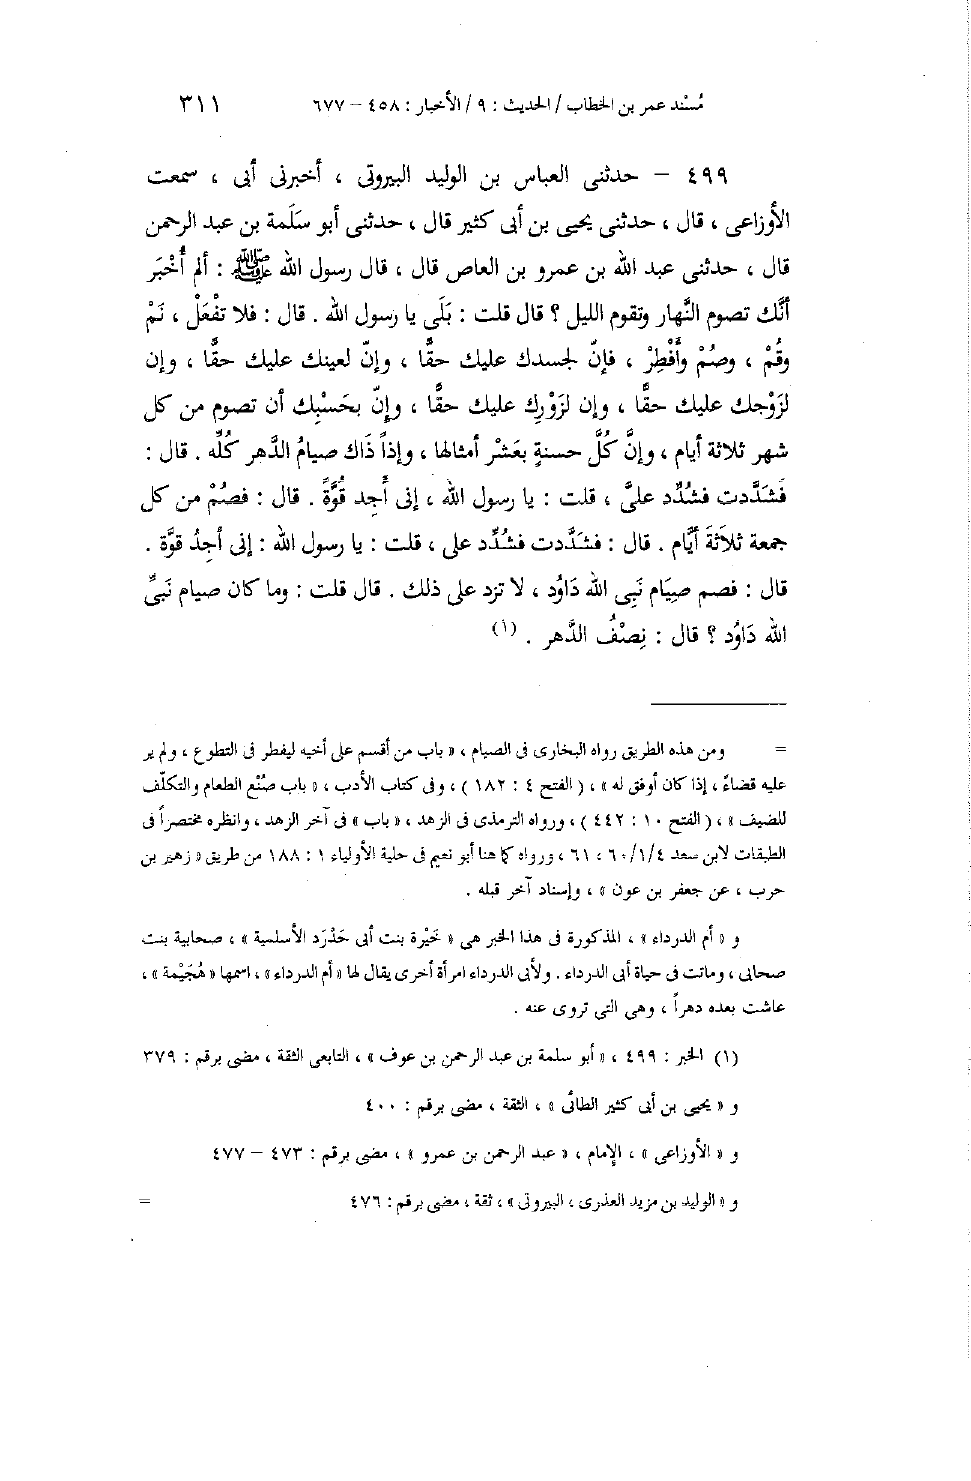 مُسْند عمر بن الخطاب / الحديث : ٩ / الأخبار : ٤٥٨ – ٦٧٧ ٣١١
٤٩٩ – حدثنى العباس بن الوليد البيروتى ، أخبرنى أبى ، سمعت
الأوزاعى ، قال ، حدثنى يحيى بن أبى كثير قال ، حدثنى أبو سَلَمة بن عبد الرحمن
قال ، حدثنى عبد الله بن عمرو بن العاص قال ، قال رسول الله ﷺ : ألم أُخْبَر
أنَّك تصوم النَّهار وتقوم الليل ؟ قال قلت : بَلَى يا رسول الله . قال : فلا تفْعَلْ ، نَمْ
وقُمْ ، وصُمْ وأَفْطِرْ ، فإنّ لجسدك عليك حقًّا ، وإنّ لعينك عليك حقًّا ، وإن
لزَوْجك عليك حقًّا ، وإن لزَوْرِك عليك حقًّا ، وإنّ بحَسْبِك أن تصوم من كل
شهر ثلاثة أيام ، وإنَّ كُلَّ حسنةٍ بعَشْر أمثالها ، وإذاً ذَاك صيامُ الدَّهر كُلِّه . قال :
فَشَدَّدت فشُدِّد علىَّ ، قلت : يا رسول الله ، إنى أَجِد قُوَّةً . قال : فصُمْ من كل
جمعة ثلاَثَةَ أيَّام . قال : فشَدَّدت فشُدِّد على ، قلت : يا رسول الله : إنى أجِدُ قوَّة .
قال : فصم صِيَام نَبِى الله دَاوُد ، لا تزد على ذلك . قال قلت : وما كان صيام نَبىِّ
الله دَاوُد ؟ قال : نِصْفُ الدَّهر . (١)
= ومن هذه الطريق رواه البخارى فى الصيام ، « باب من أقسم على أخيه ليفطر فى التطوع ، ولم ير
عليه قضاءً ، إذا كان أوفق له » ، ( الفتح ٤ : ١٨٢ ) ، وفى كتاب الأدب ، « باب صُنْع الطعام والتكلّف
للضيف » ، ( الفتح ١٠ : ٤٤٢ ) ، ورواه الترمذى فى الزهد ، « باب » فى آخر الزهد ، وانظره مختصراً فى
الطبقات لابن سعد ٦٠/١/٤ ، ٦١ ، ورواه كما هنا أبو نعيم فى حلية الأولياء ١ : ١٨٨ من طريق « زهير بن
حرب ، عن جعفر بن عون » ، وإسناد آخر قبله .
و « أم الدرداء » ، المذكورة فى هذا الخبر هى « خَيْرة بنت أبى حَدْرَد الأسلمية » ، صحابية بنت
صحابى ، وماتت فى حياة أبى الدرداء . ولأبى الدرداء امرأة أخرى يقال لها « أم الدرداء » ، اسمها « هُجَيْمة » ،
عاشت بعده دهراً ، وهى التى تروى عنه .
(١) الخبر : ٤٩٩ ، « أبو سلمة بن عبد الرحمن بن عوف » ، التابعى الثقة ، مضى برقم : ٣٧٩
و « يحيى بن أبى كثير الطائى » ، الثقة ، مضى برقم : ٤٠٠
و « الأوزاعى » ، الإمام ، « عبد الرحمن بن عمرو » ، مضى برقم : ٤٧٣ – ٤٧٧
و « الوليد بن مزيد العذرى ، البيروتى » ، ثقة ، مضى برقم : ٤٧٦ =